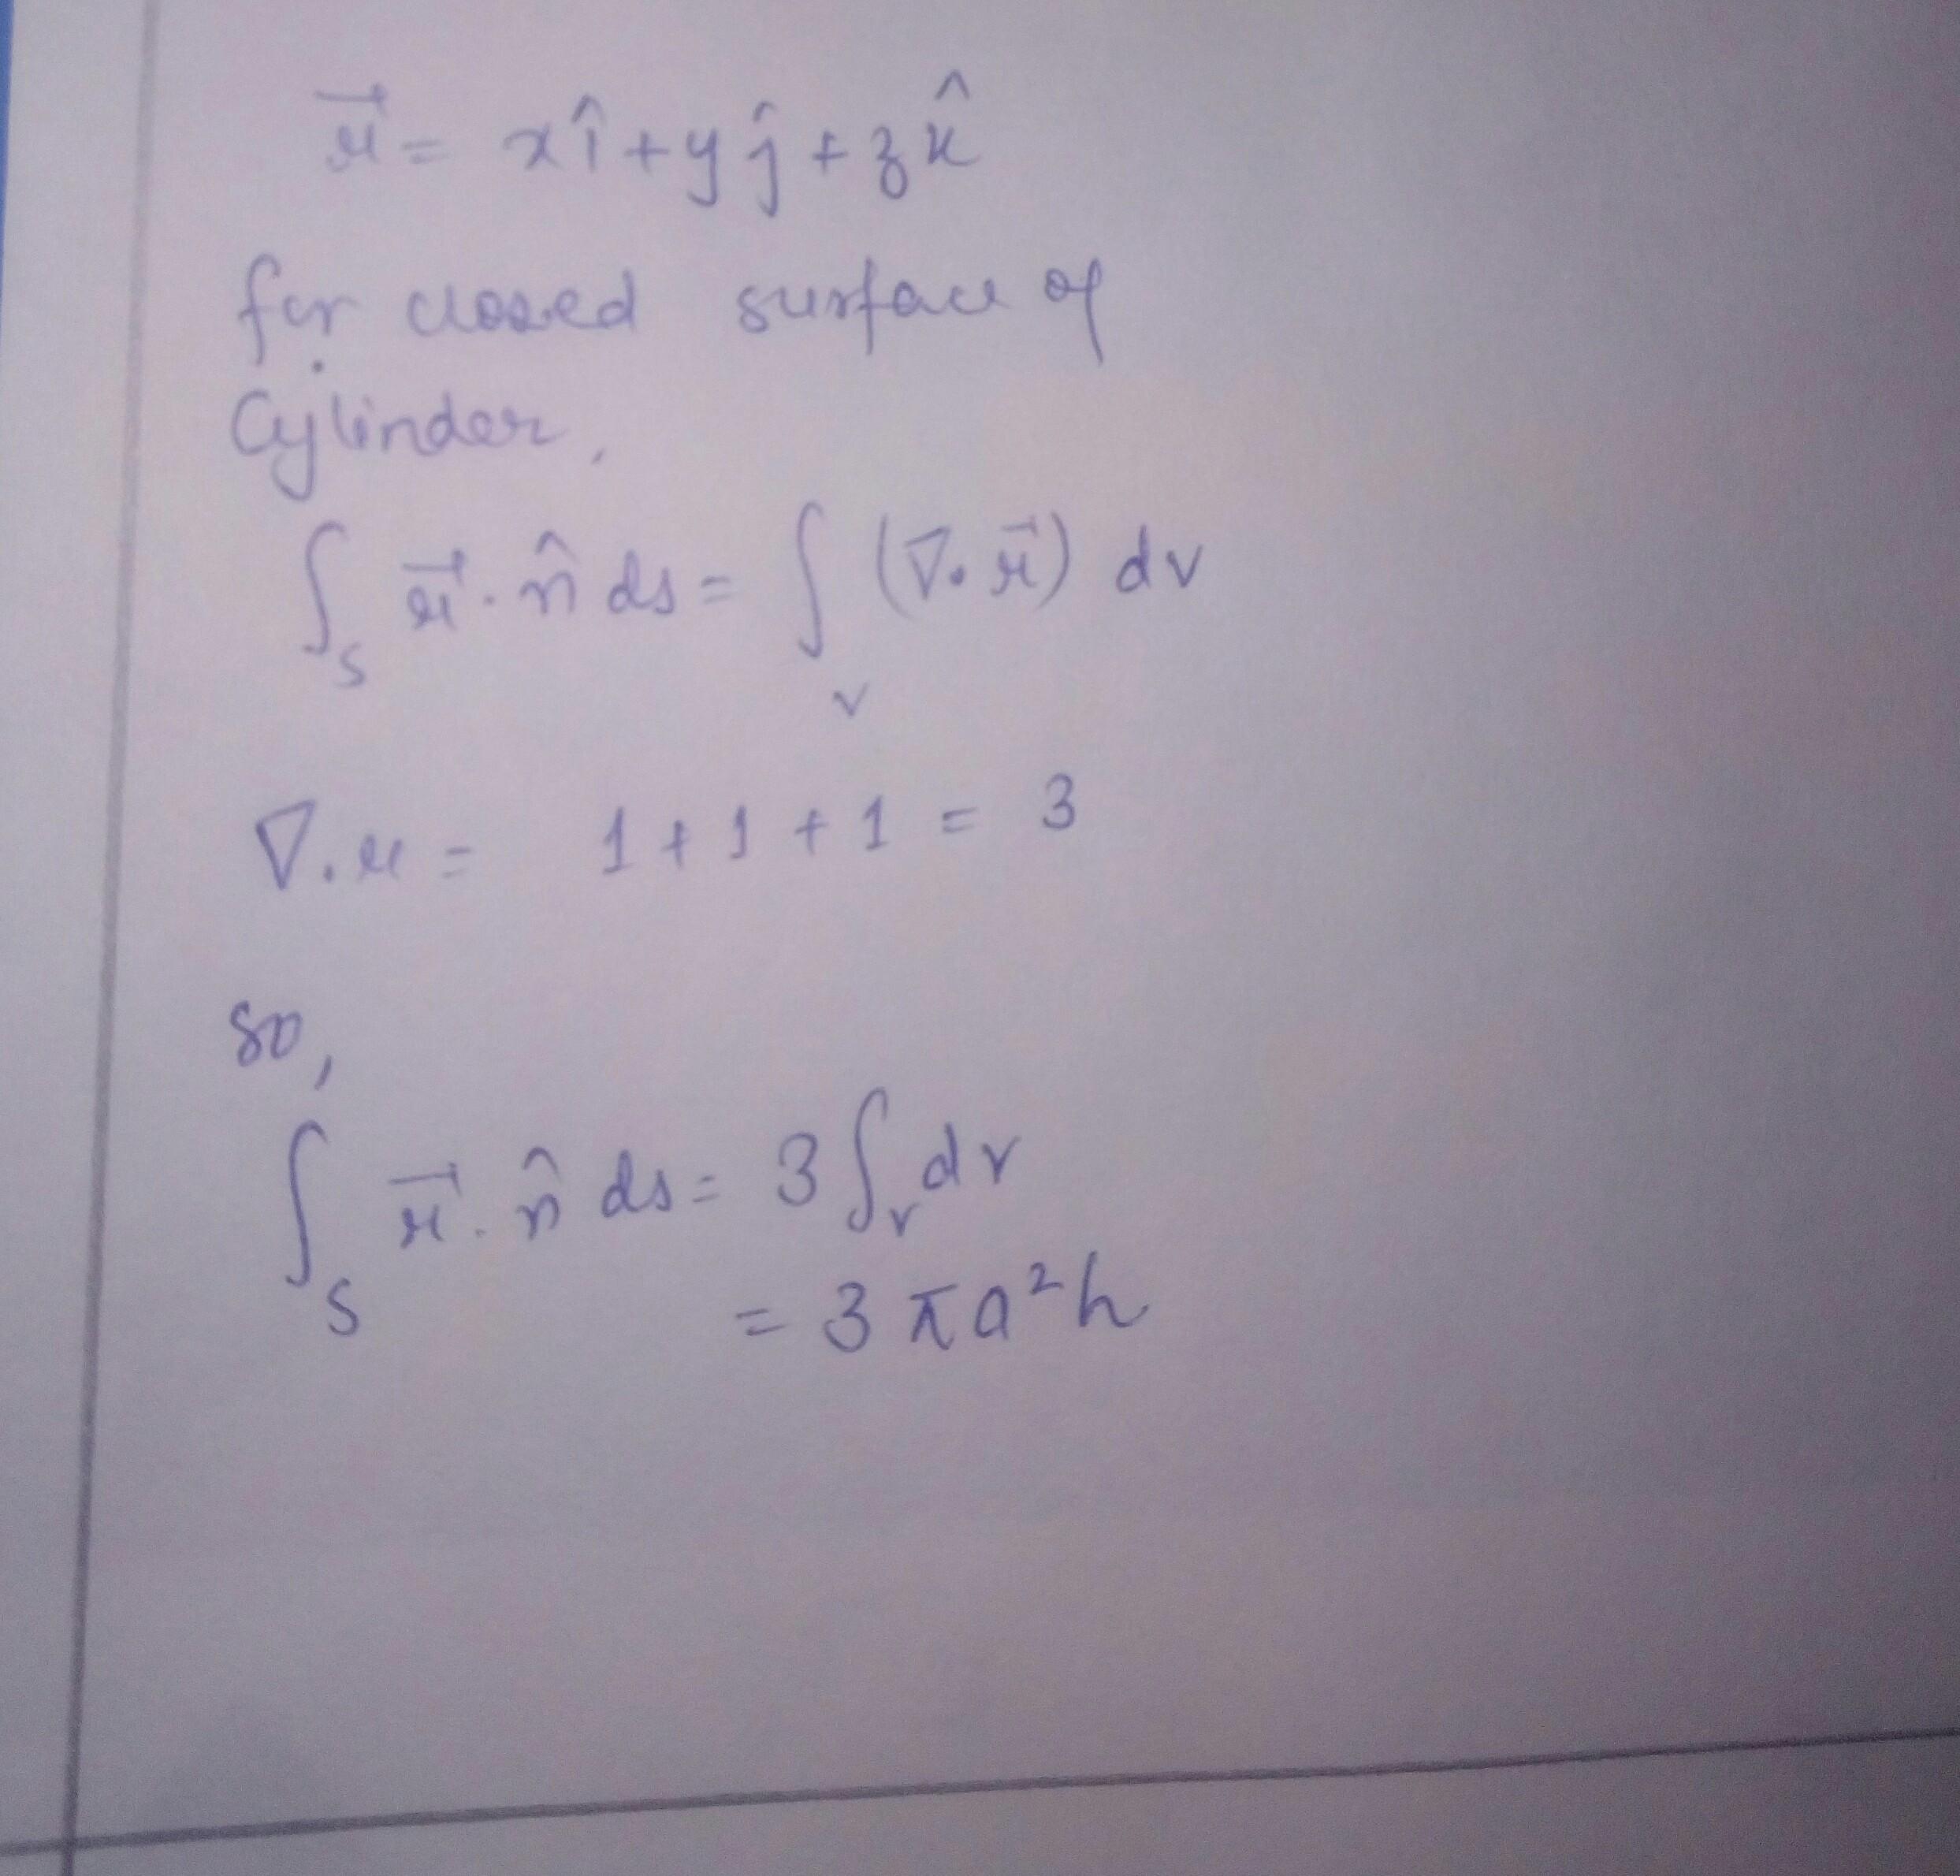 r⃗ = xî + yĵ + zk̂
for closed surface of
Cylinder,
∫_S r⃗ . n̂ ds = ∫_V (∇. r⃗) dv
∇. r = 1 + 1 + 1 = 3
so,
∫_S r⃗ . n̂ ds = 3 ∫_V dv
= 3 π a² h